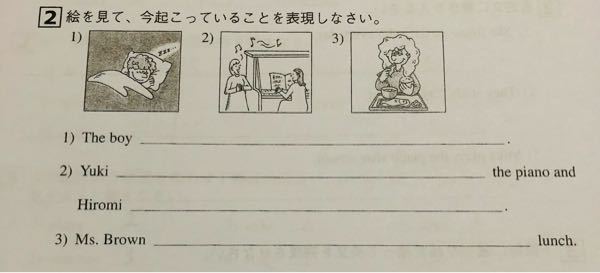 2 絵を見て、今起こっていることを表現しなさい。
1) 2) 3)
zzz...
1) The boy ______________________ .
2) Yuki ______________________ the piano and
Hiromi ______________________ .
3) Ms. Brown ______________________ lunch.